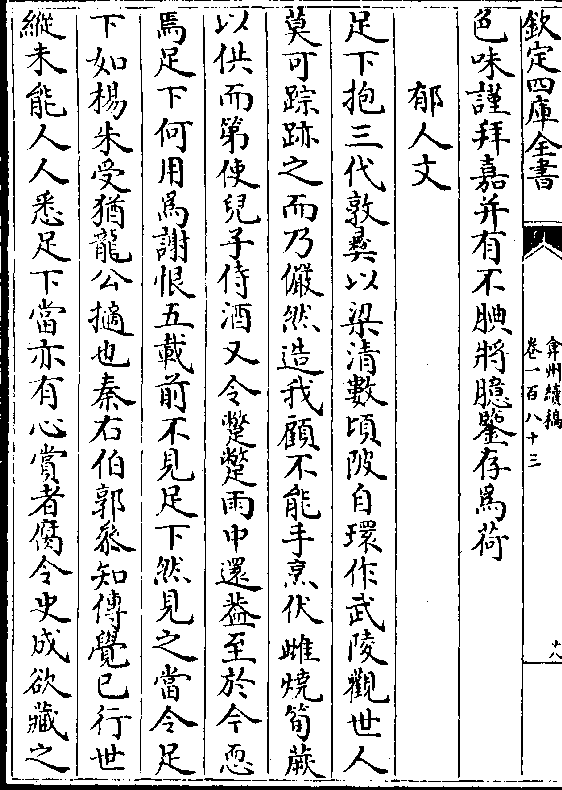 欽定四庫全書
弇州續稿
卷一百八十三
十八
色味謹拜嘉并有不腆將臆鑒存為荷
郁人文
足下抱三代敦彞以梁清數頃陂自環作武陵觀世人
莫可踪跡之而乃儼然造我顧不能手烹伏雌燒筍蕨
以供而第使兒子侍酒又令蹩躄雨中還益至於今恧
焉足下何用為謝恨五載前不見足下然見之當令足
下如楊朱受猶龍公擿也秦右伯郭叅知傳覺已行世
縱未能人人悉足下當亦有心賞者傷令史成欲藏之